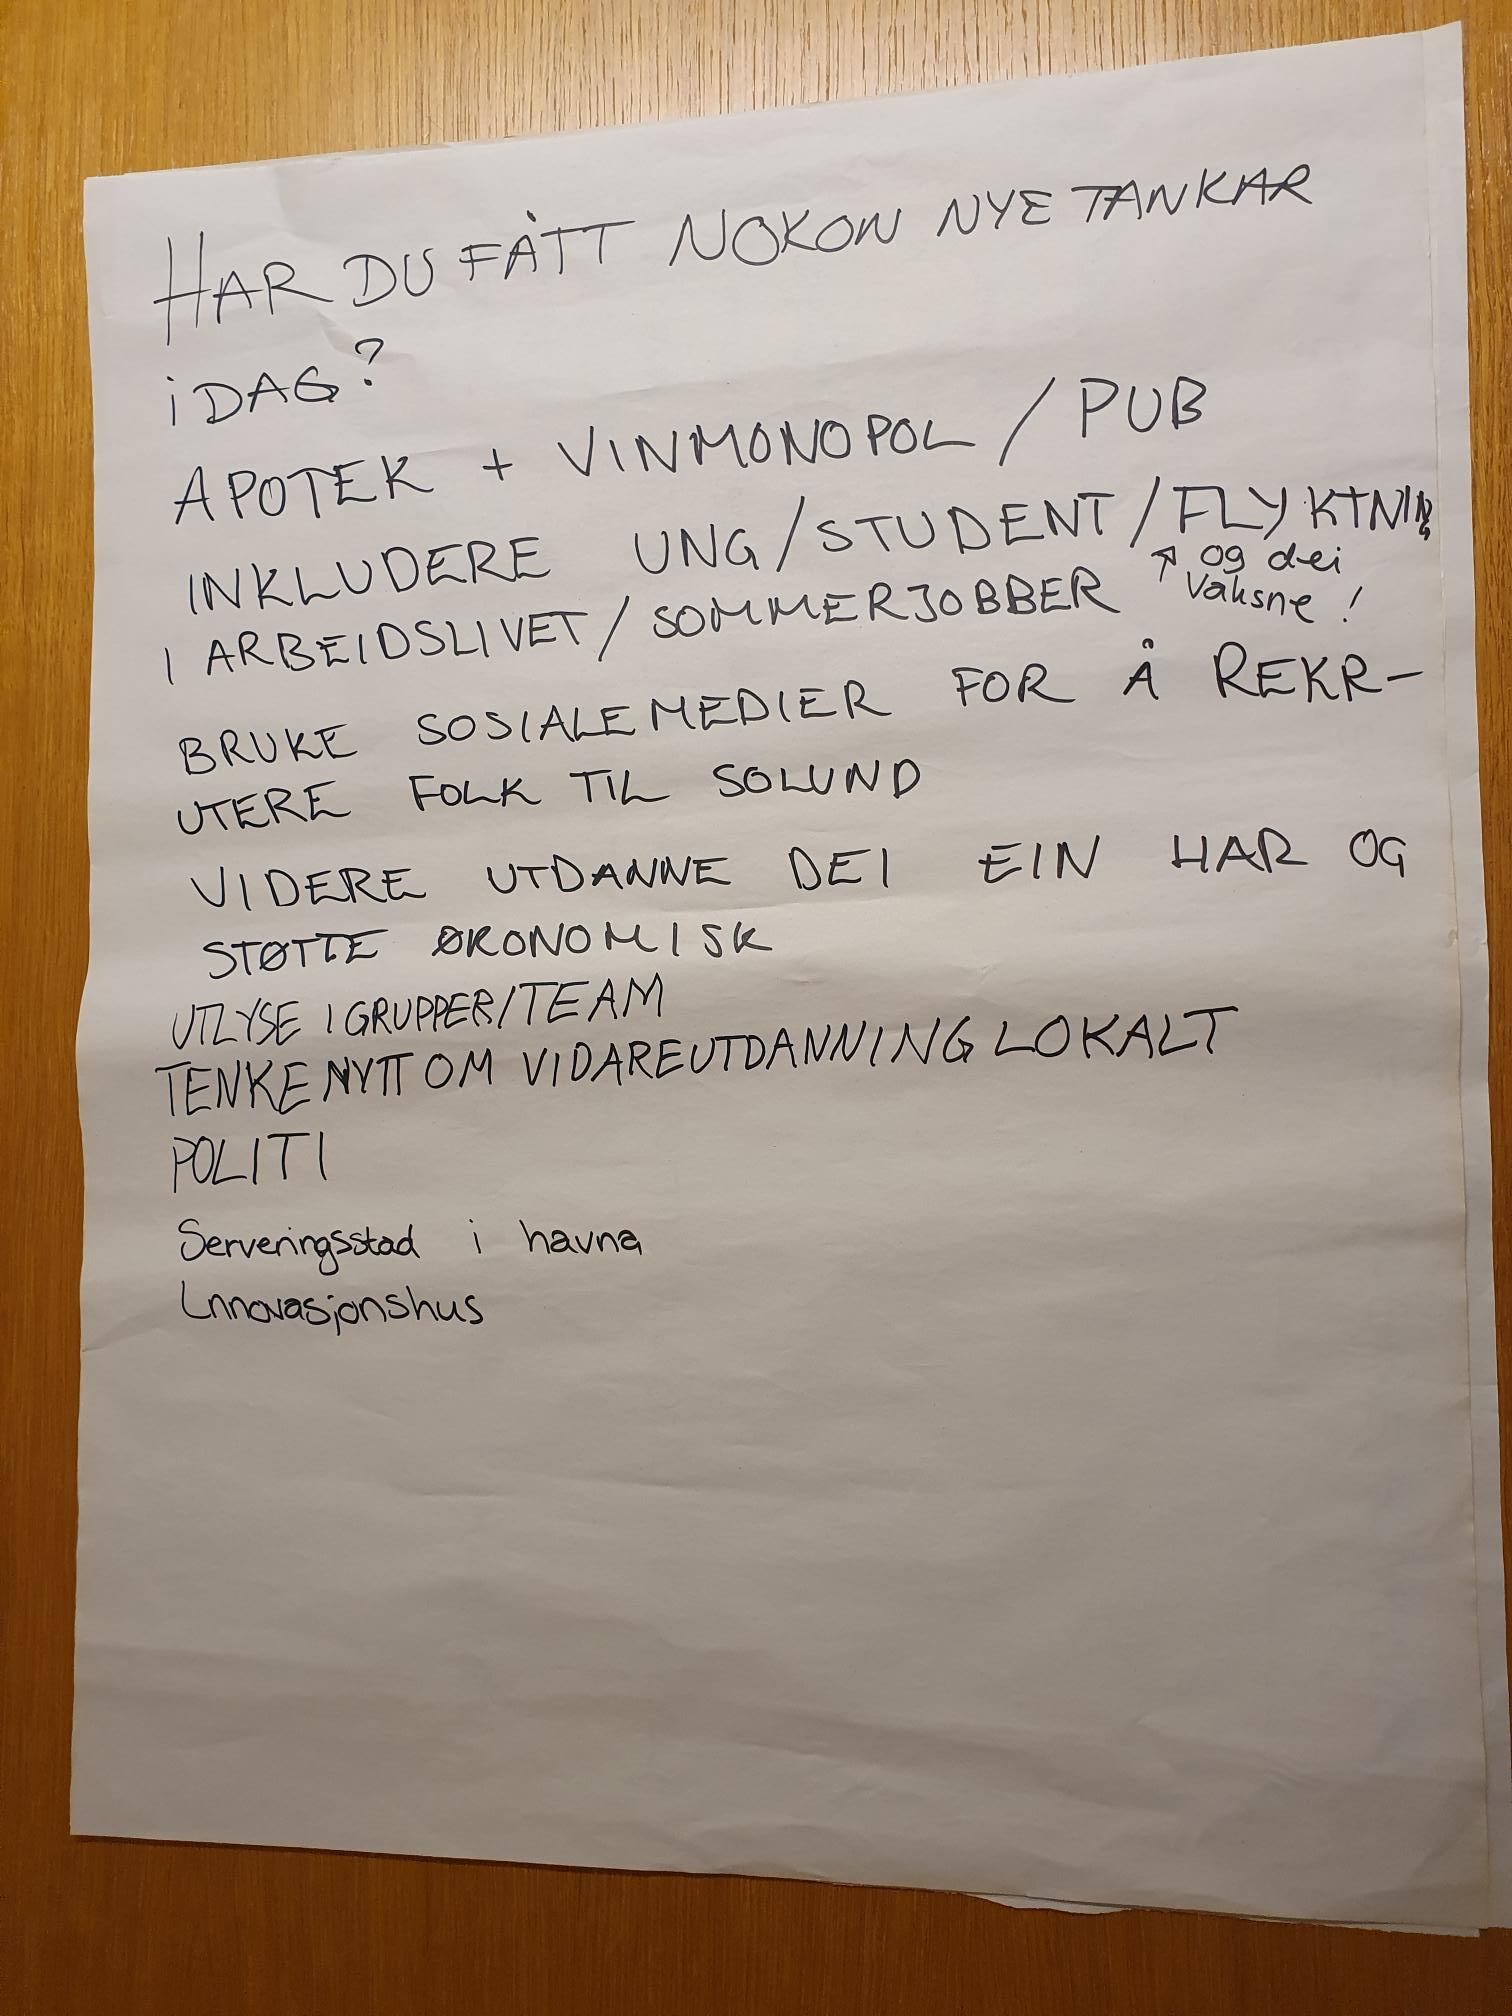 HAR DU FÅTT NOKON NYE TANKAR
i DAG?
APOTEK + VINMONOPOL / PUB
INKLUDERE UNG/STUDENT/FLYKTNING
↗ og dei
vaksne!
I ARBEIDSLIVET/SOMMERJOBBER
BRUKE SOSIALE MEDIER FOR Å REKR-
UTERE FOLK TIL SOLUND
VIDERE UTDANNE DEI EIN HAR OG
STØTTE ØKONOMISK
UTLYSE I GRUPPER/TEAM
TENKE NYTT OM VIDAREUTDANNING LOKALT
POLITI
Serveringsstad i havna
Innovasjonshus